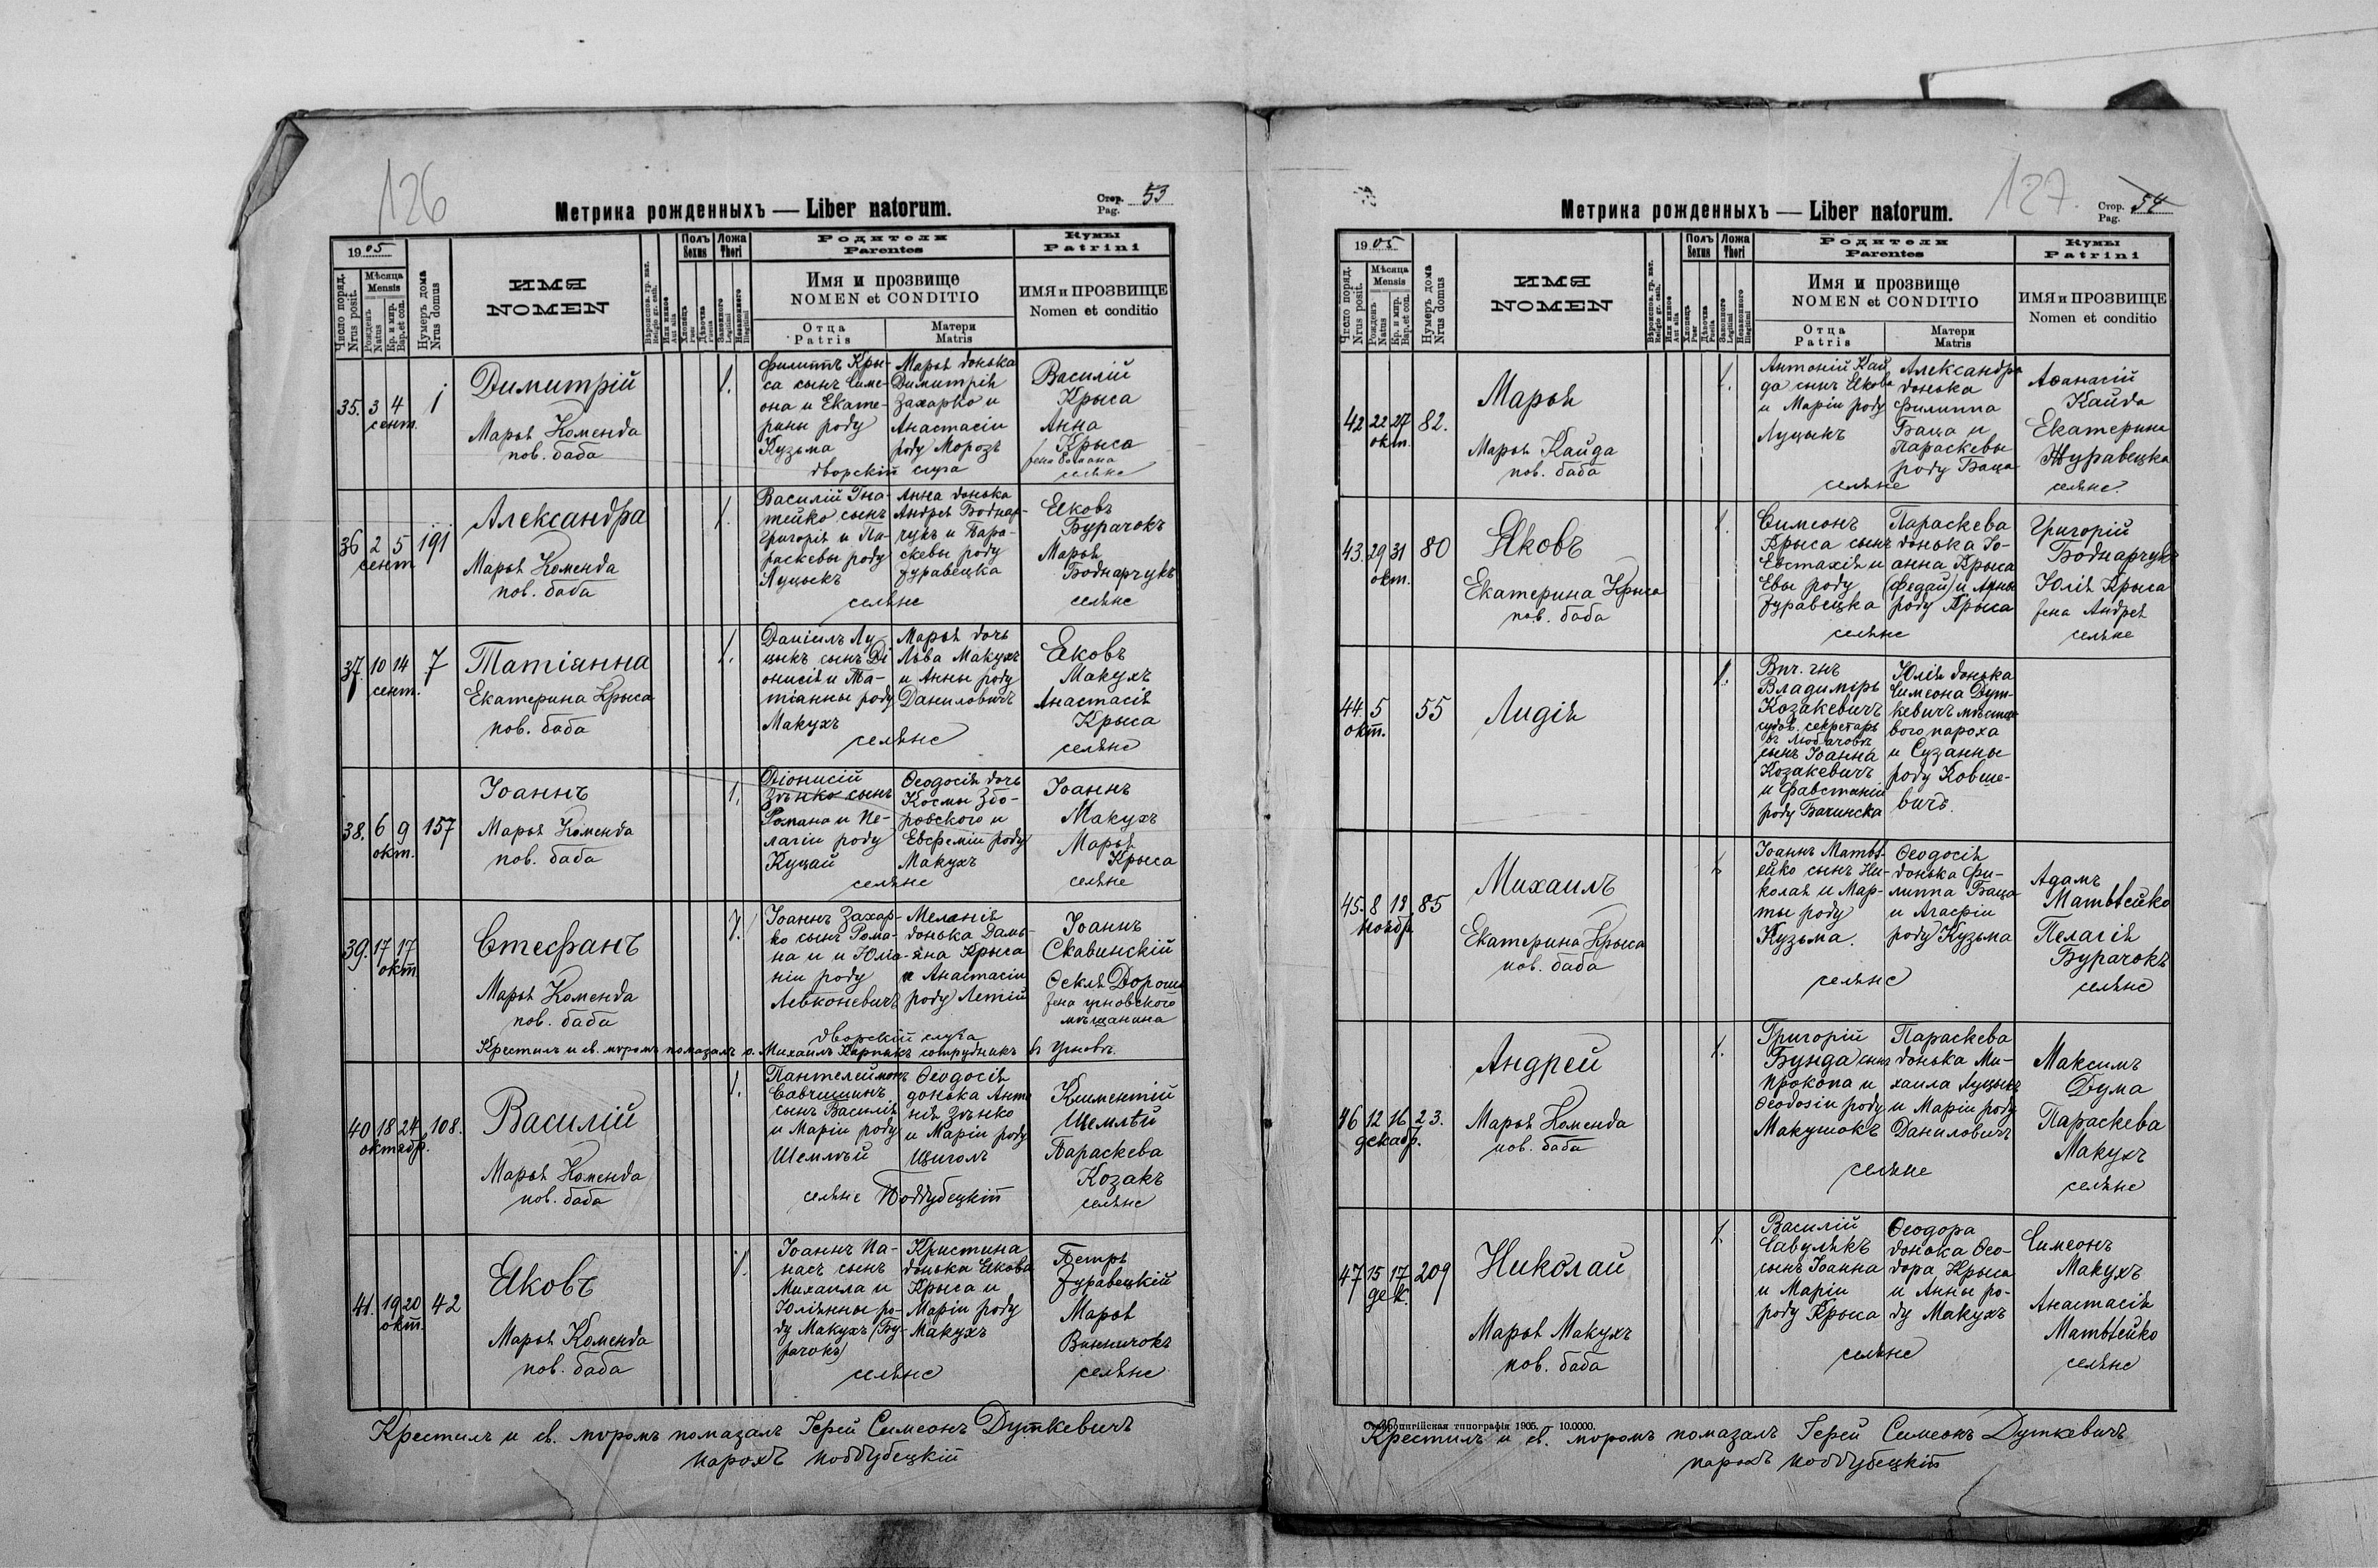 126
Метрика рожденныхъ — Liber natorum.
Стор. Pag. 53
1905
Число поряд. Nrus posit.
Мѣсяца Mensis
Рожденъ Natus
Кр. и мир. Bap. et con.
Нумеръ дома Nrus domus
ИМЯ
NOMEN
Вѣроисповѣд. гр. кат. Religio gr. cath.
Или иное Aut alia
Полъ Sexus
Хлопець Puer
Дѣвочка Puella
Ложа Thori
Законного Legitimi
Незаконного Illegitimi
Родители
Parentes
Имя и прозвище
NOMEN et CONDITIO
Отца Patris
Матери Matris
Кумы
Patrini
ИМЯ и ПРОЗВИЩЕ
Nomen et conditio
35. 3 4 сент. 1
Димитрій
Марья Коменда
пов. баба
1.
Филиппъ Кры-
са сынъ Симе-
она и Екате-
рины роду
Кузьма
Марья донька
Димитрія
Захарко и
Анастасіи
роду Морозъ
дворскій слуга
Василій
Крыса
Анна
Крыса
жена Романа
селяне
36 2 5 сент 191
Александра
Марья Коменда
пов. баба
1.
Василій Гна-
тейко сынъ
Григорія и Па-
раскевы роду
Луцыкъ
Анна донька
Андрея Боднар-
чукъ и Пара-
скевы роду
Журавецка
селяне
Яковъ
Бурачокъ
Марья
Боднарчукъ
селяне
37. 10 14 сент. 7
Татіанна
Екатерина Крыса
пов. баба
1.
Даніилъ Лу
цыкъ сынъ Ді
онисія и Та-
тіанны роду
Макухъ
Марья дочь
Льва Макухъ
и Анны роду
Даниловичъ
селяне
Яковъ
Макухъ
Анастасія
Крыса
селяне
38. 6 9 окт. 157
Іоаннъ
Марья Коменда
пов. баба
1.
Діонисій
Зѣнко сынъ
Романа и Пе-
лагіи роду
Куцай
Ѳеодосія дочь
Космы Збо-
ровского и
Евфеміи роду
Макухъ
селяне
Іоаннъ
Макухъ
Марья
Крыса
селяне
39. 17 17 окт.
Стефанъ
Марья Коменда
пов. баба
1.
Іоаннъ Захар-
ко сынъ Рома-
на и и Юліа-
ніи роду
Левконевичъ
Меланія
донька Дамь-
яна Крыса
и Анастасіи
роду Летій
дворскій слуга
Іоаннъ
Скавинскій
Ѳекля Дорош
жена угновского
мѣщанина
Крестилъ и св. муромъ помазалъ о. Михаилъ Карпякъ сотрудникъ въ Угновѣ.
40 18 24 октябр. 108.
Василій
Марья Коменда
пов. баба
1.
Пантелеймонъ
Савчишинъ
сынъ Василія
и Маріи роду
Шемлѣй
Ѳеодосія
донька Анто
нія Зѣнко
и Маріи роду
Щиголъ
селяне Поддубецкіи
Климентій
Шемлѣй
Параскева
Козакъ
селяне
41. 19 20 окт. 42
Яковъ
Марья Коменда
пов. баба
1.
Іоаннъ Па-
насъ сынъ
Михаила и
Юліянны ро-
ду Макухъ (Бу-
рачокъ)
Кристина
донька Якова
Крыса и
Маріи роду
Макухъ
селяне
Петръ
Журавецкій
Марья
Винничокъ
селяне
Крестилъ и св. муромъ помазалъ Іерей Симеонъ Дуткевичъ
парохъ поддубецкій
127.
Метрика рожденныхъ — Liber natorum.
Стор. Pag. 54
1905
Число поряд. Nrus posit.
Мѣсяца Mensis
Рожденъ Natus
Кр. и мир. Bap. et con.
Нумеръ дома Nrus domus
ИМЯ
NOMEN
Вѣроисповѣд. гр. кат. Religio gr. cath.
Или иное Aut alia
Полъ Sexus
Хлопець Puer
Дѣвочка Puella
Ложа Thori
Законного Legitimi
Незаконного Illegitimi
Родители
Parentes
Имя и прозвище
NOMEN et CONDITIO
Отца Patris
Матери Matris
Кумы
Patrini
ИМЯ и ПРОЗВИЩЕ
Nomen et conditio
42 22 27 окт. 82.
Марья
Марья Кайда
пов. баба
1.
Антоній Кай
да сынъ Якова
и Маріи роду
Луцыкъ
Александра
донька
Филиппа
Баца и
Параскевы
роду Баца
селяне
Аѳанасій
Кайда
Екатерина
Журавецка
селяне.
43. 29 31 окт. 80
Яковъ
Екатерина Крыса
пов. баба
1.
Симеонъ
Крыса сынъ
Евстахія и
Евы роду
Журавецка
Параскева
донька Іо-
анна Крыса
(Федай) и Анны
роду Крыса
селяне
Григорій
Боднарчукъ
Юлія Крыса
жена Андрея
селяне
44. 5 окт. 55
Лидія
1.
Впч. Гнъ
Владиміръ
Козакевичъ
судов. секретарь
въ Любачовѣ
сынъ Іоанна
Козакевичъ
и Фавстиніи
роду Бачинска
Юлія донька
Симеона Дут-
кевичъ мѣстце-
вого пароха
и Сузанны
роду Ковше-
вичъ.
45. 8 12 ноябр. 85
Михаилъ
Екатерина Крыса
пов. баба
1.
Іоаннъ Матвѣ-
ейко сынъ Ни-
колая и Мар-
ты роду
Кузьма.
Ѳеодосія
донька Фи-
липпа Баца
и Агафіи
роду Кузьма
селяне
Адамъ
Матвѣейко
Пелагія
Бурачокъ
селяне
46 12 16 декабр. 23.
Андрей
Марья Коменда
пов. баба
1.
Григорій
Бунда сынъ
Прокопа и
Ѳеодосіи роду
Макушокъ
Параскева
донька Ми-
хаила Луцыкъ
и Маріи роду
Даниловичъ
селяне
Максимъ
Дума
Параскева
Макухъ
селяне
47 15 17 дек. 209
Николай
Марья Макухъ
пов. баба
1.
Василій
Савулякъ
сынъ Іоанна
и Маріи
роду Крыса
Ѳеодора
донька Ѳео-
дора Крыса
и Анны ро-
ду Макухъ
селяне
Симеонъ
Макухъ
Анастасія
Матвѣейко
селяне
Ставропигійская типографія 1905. 10.0000.
Крестилъ и св. муромъ помазалъ Іерей Симеонъ Дуткевичъ
парохъ поддубецкій